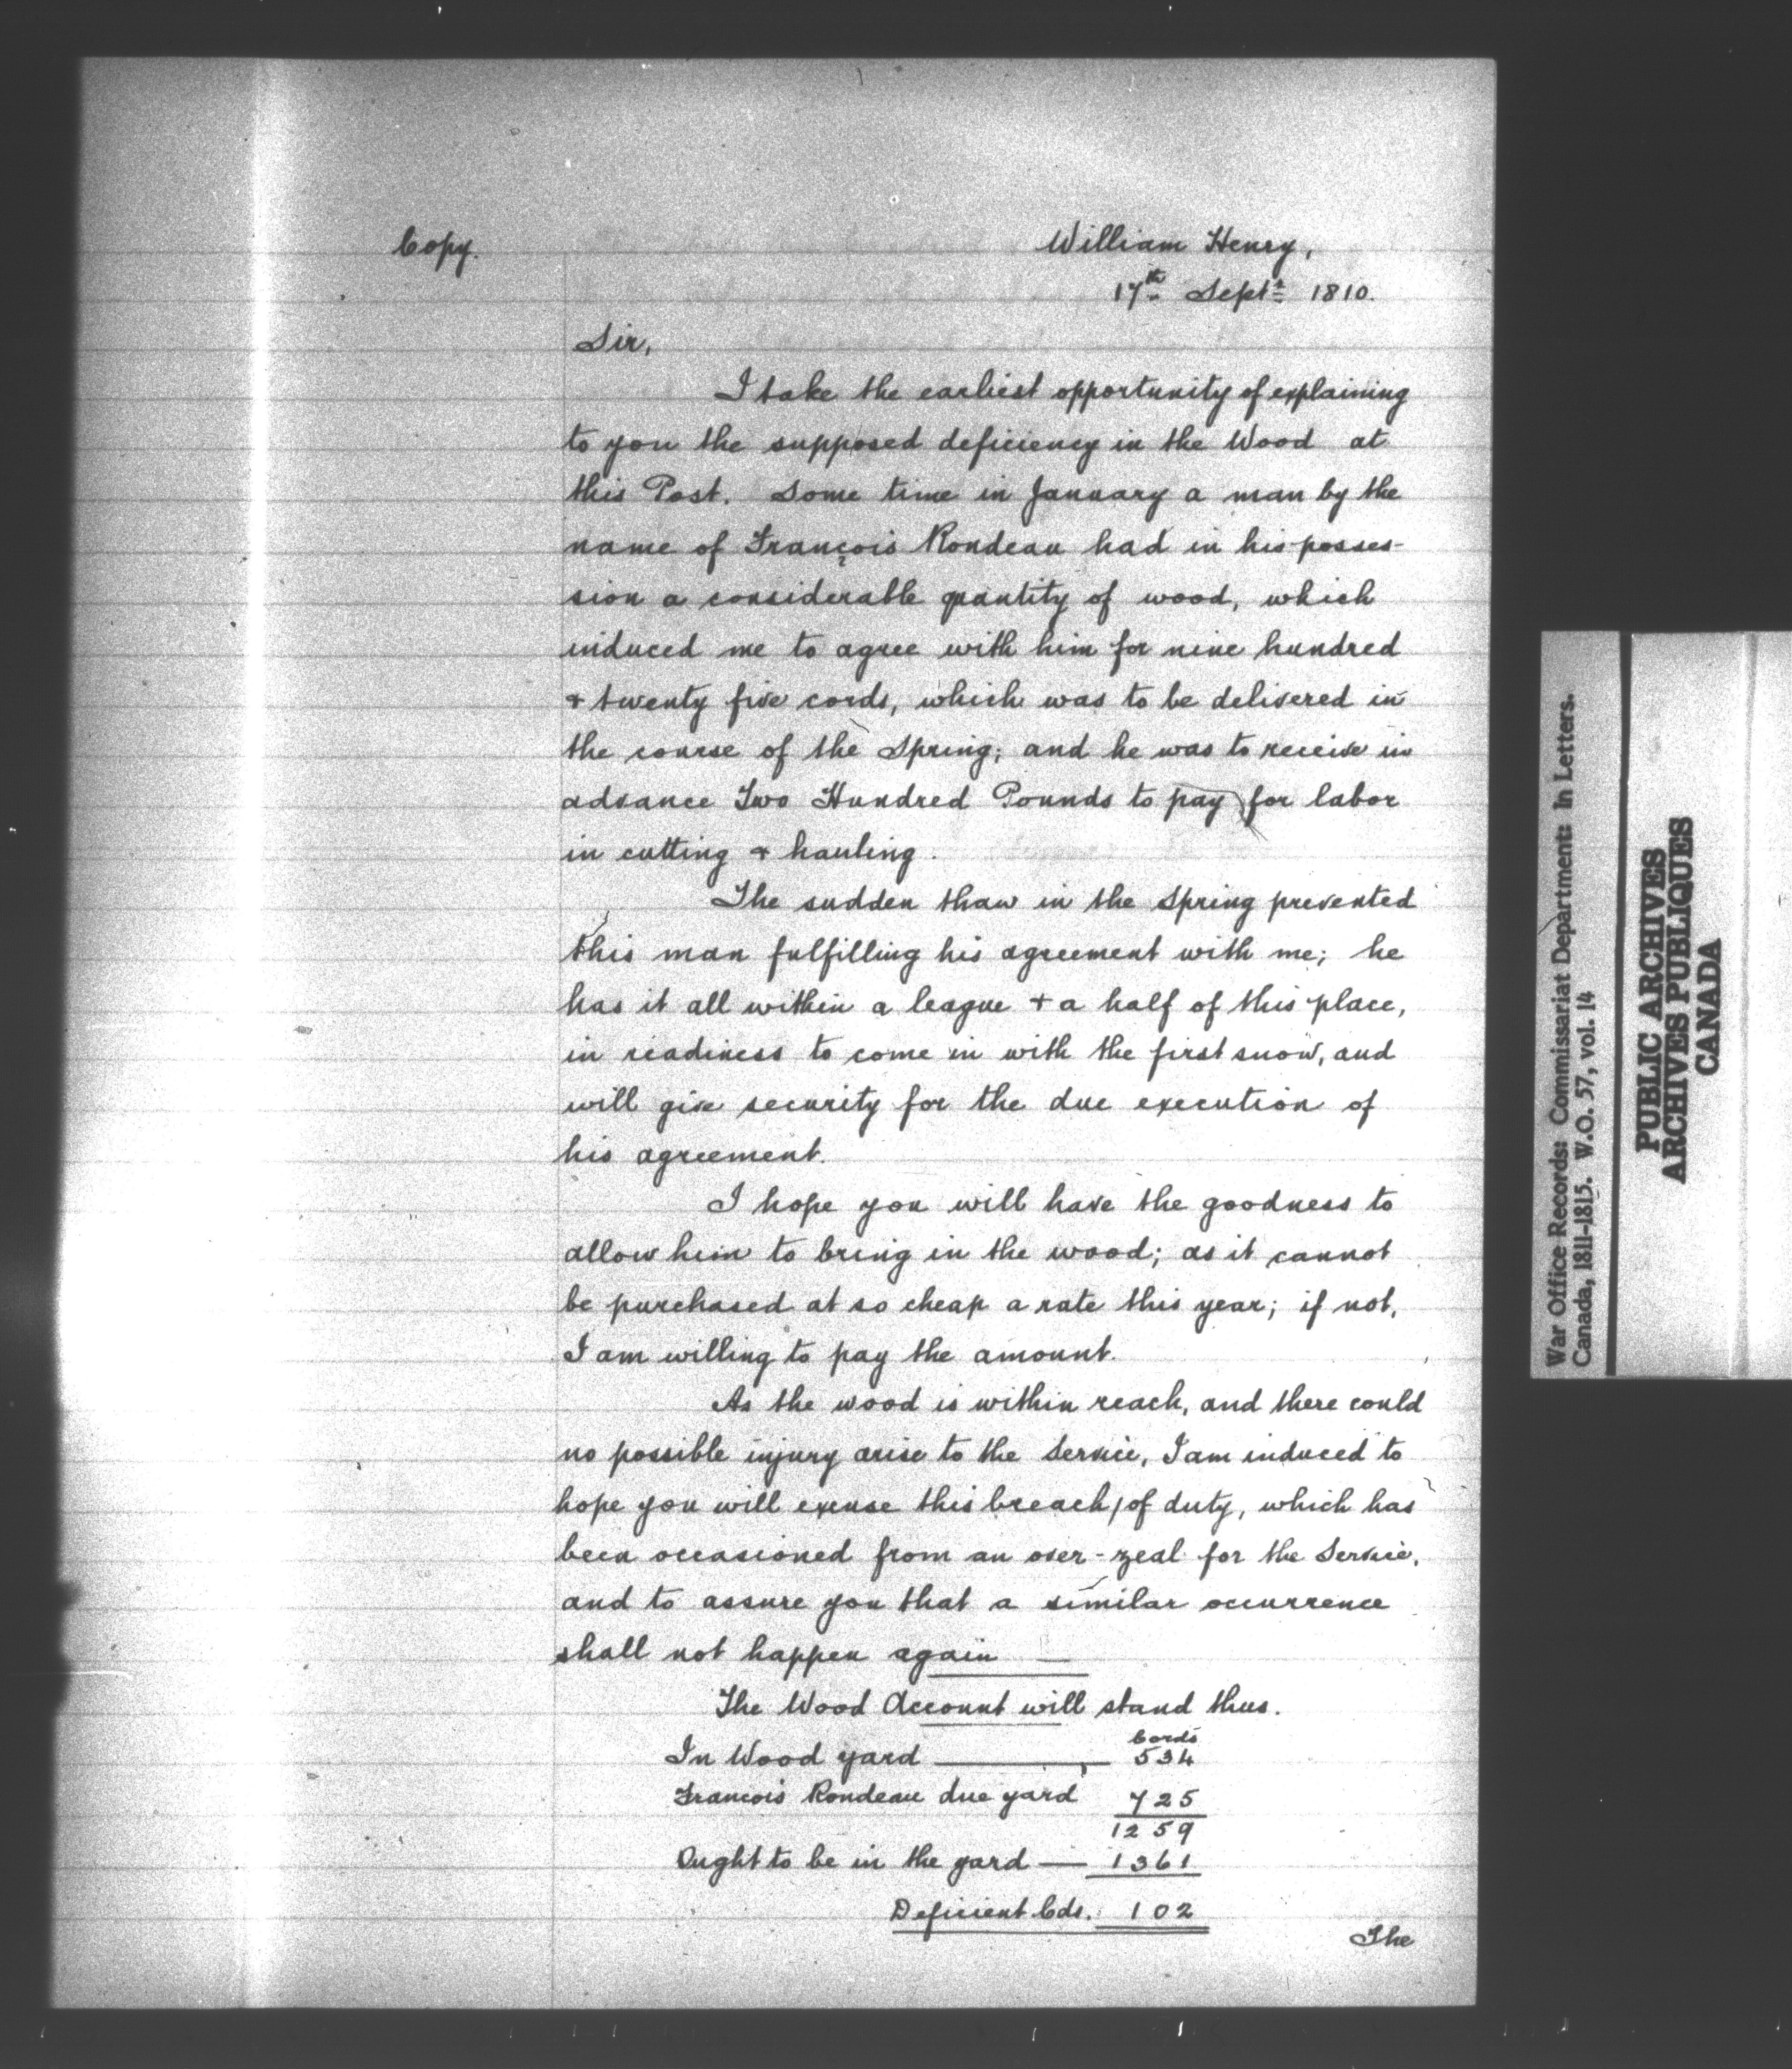 Copy.
William Henry,
17th Septr 1810.
Sir,
I take the earliest opportunity of explaining
to you the supposed deficiency in the Wood at
this Post. Some time in January a man by the
name of François Rondeau had in his posses-
sion a considerable quantity of wood, which
induced me to agree with him for nine hundred
& twenty five cords, which was to be delivered in
the course of the Spring; and he was to receive in
advance Two Hundred Pounds to pay for labor
in cutting & hauling.
The sudden thaw in the Spring prevented
this man fulfilling his agreement with me; he
has it all within a league & a half of this place,
in readiness to come in with the first snow, and
will give security for the due execution of
his agreement.
I hope you will have the goodness to
allow him to bring in the wood; as it cannot
be purchased at so cheap a rate this year; if not,
I am willing to pay the amount.
As the wood is within reach, and there could
no possible injury arise to the Service, I am induced to
hope you will excuse this breach of duty, which has
been occasioned from an over-zeal for the Service,
and to assure you that a similar occurrence
shall not happen again —
The Wood Account will stand thus.
Cords
In Wood yard — 534
Francois Rondeau due yard 725
1259
Ought to be in the yard — 1361
Deficient Cds. 102
The
War Office Records: Commissariat Department: In Letters.
Canada, 1811-1815. W.O. 57, vol. 14
PUBLIC ARCHIVES
ARCHIVES PUBLIQUES
CANADA